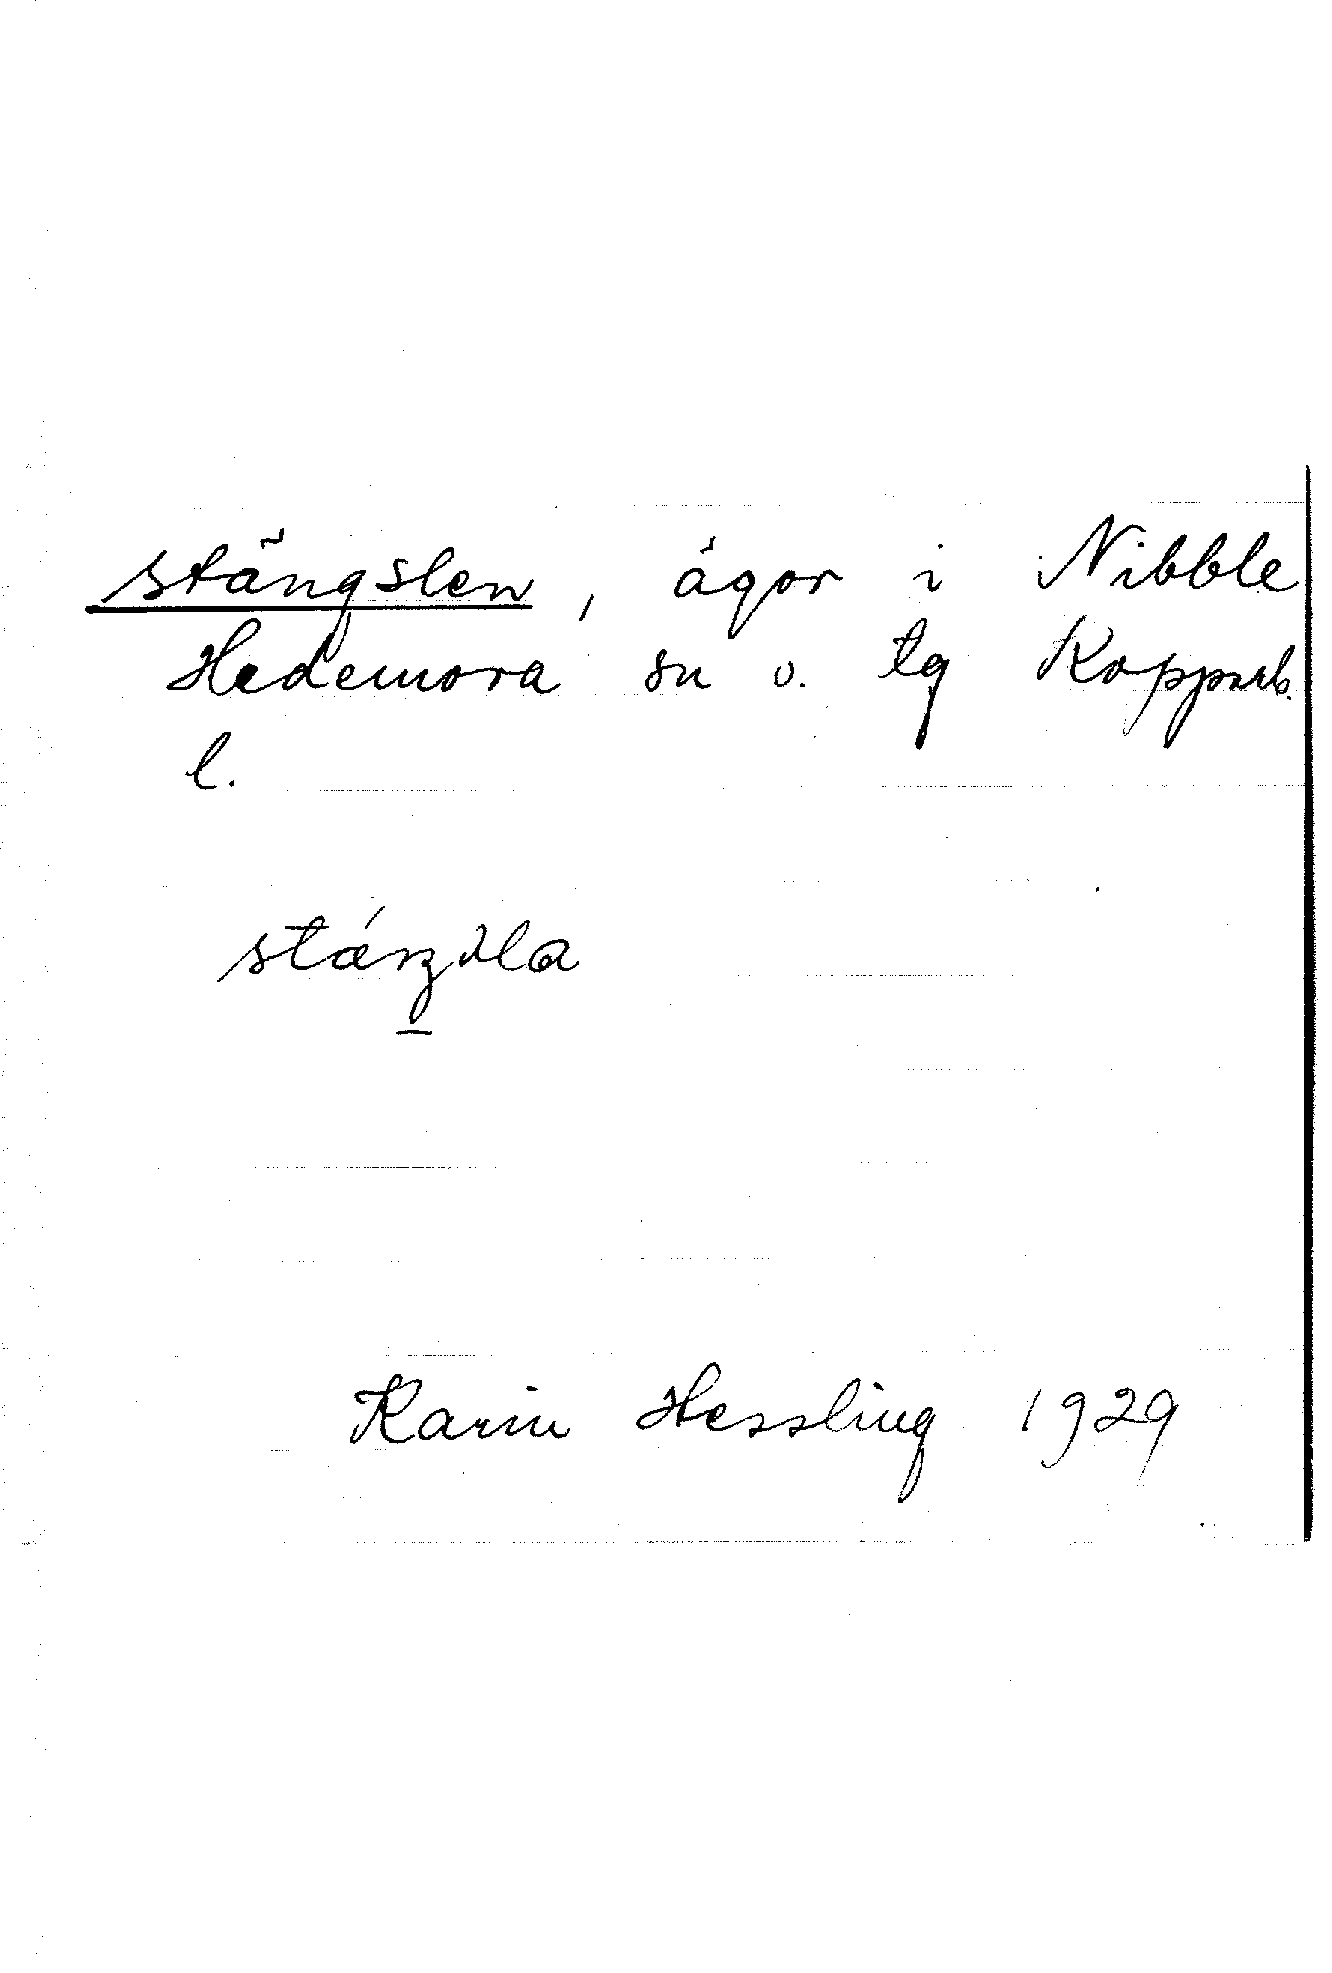 stängslen, ägor i Nibble
Hedemora sn o. tg Kopparb.
l.
Karin Hessling 1929